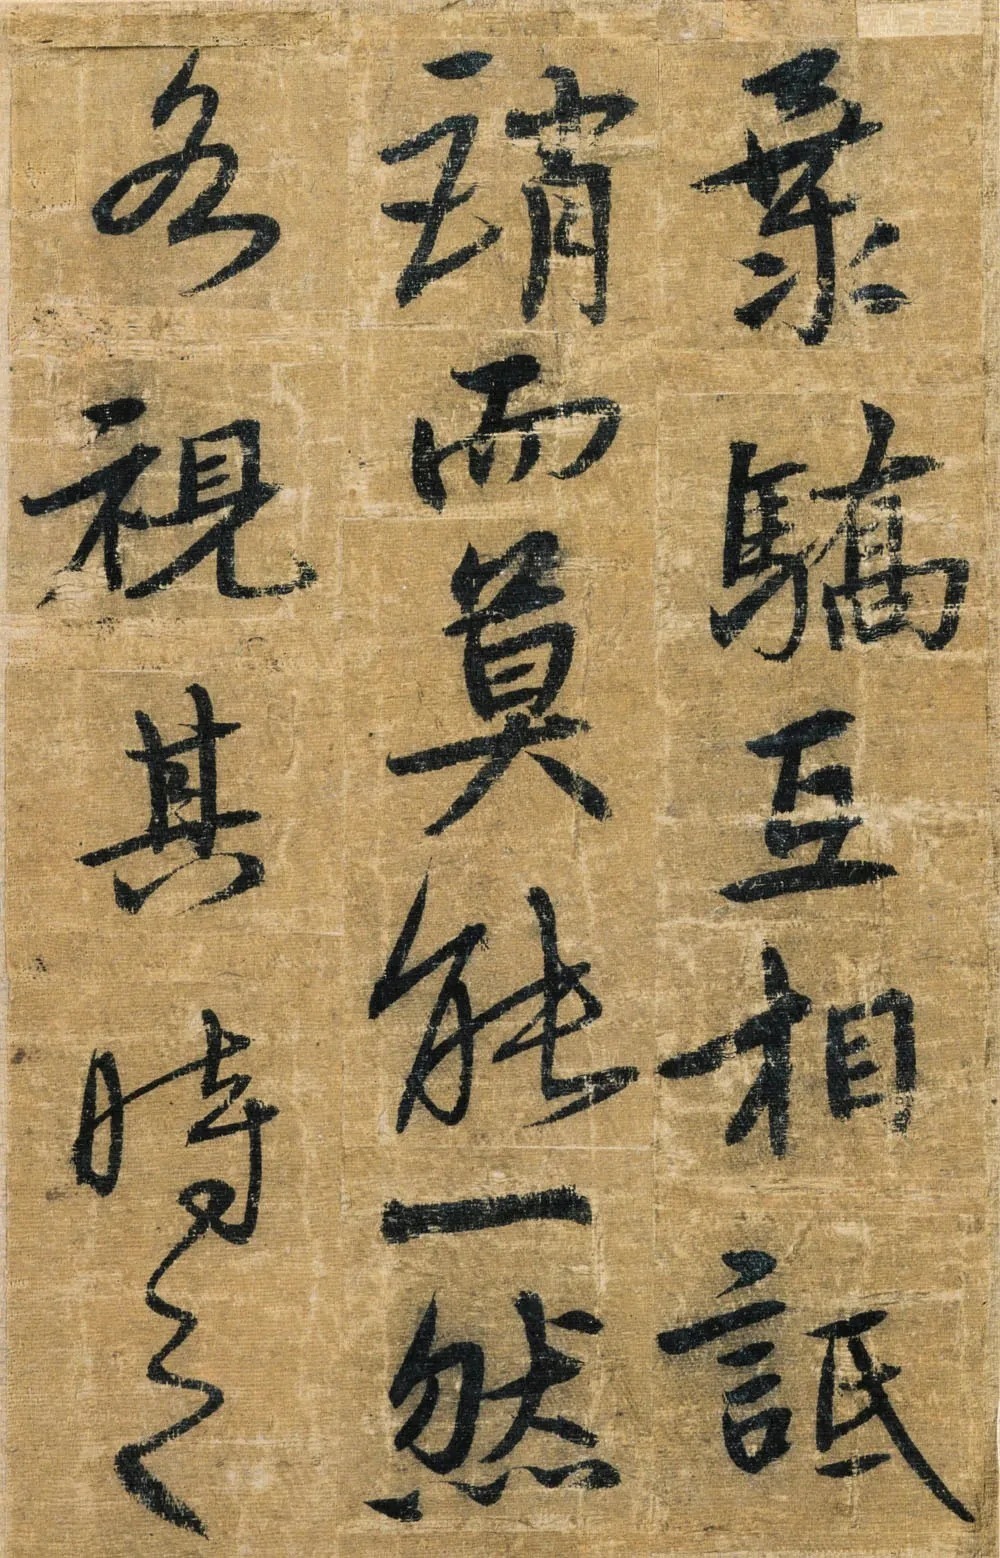 棄驕互相詆
誚而莫能一然
各視其時之